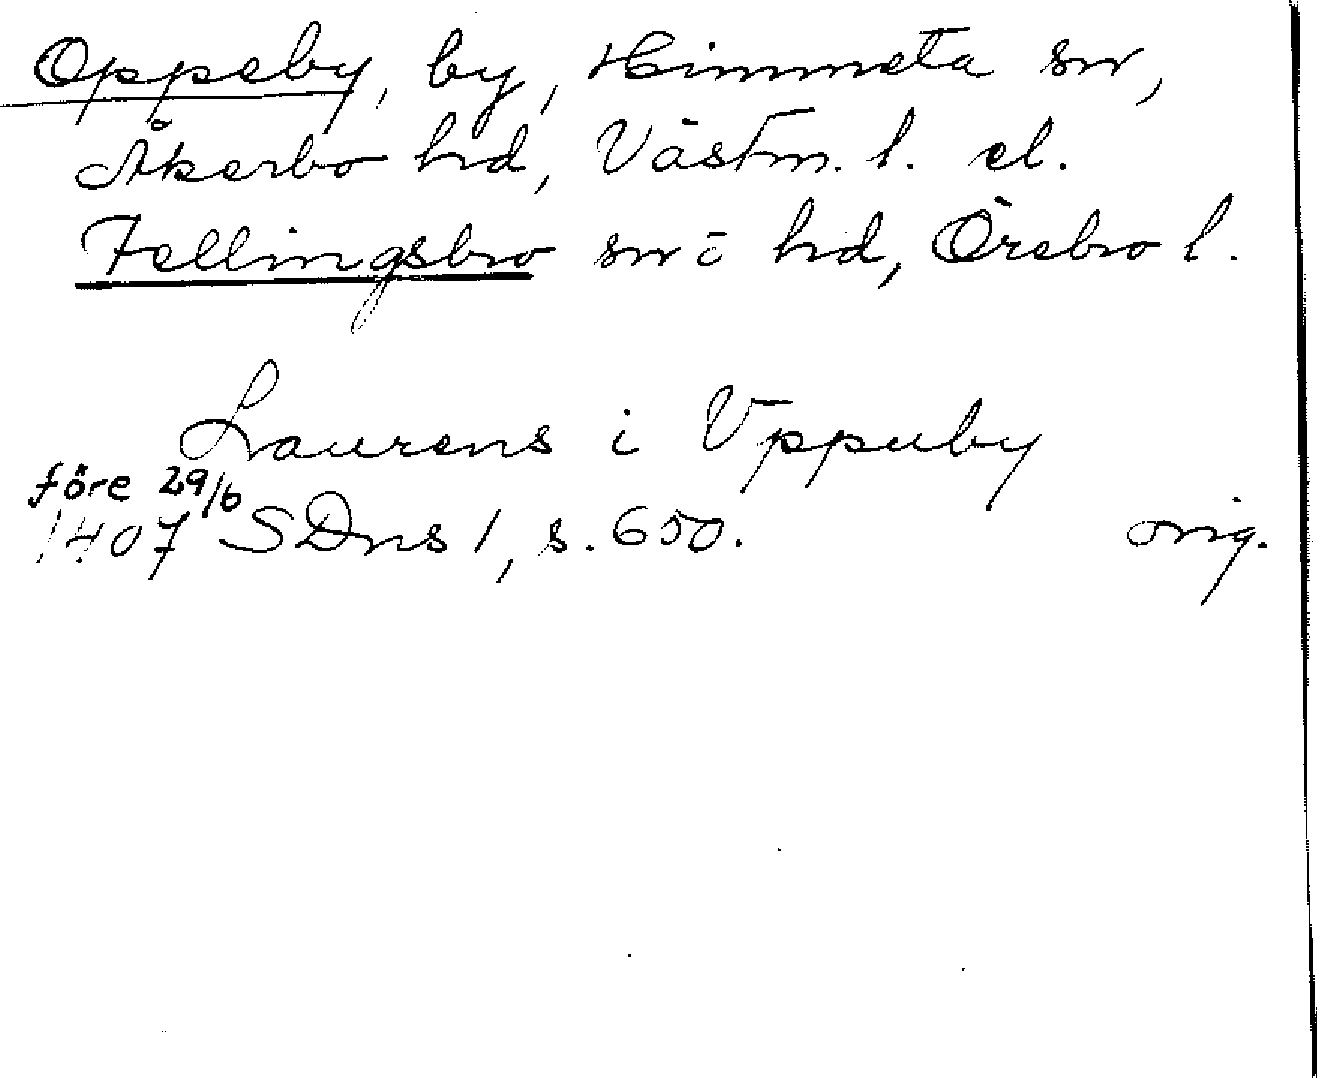 Oppeby, by, Himmeta sn,
Åkerbo hd, Västm. l. el.
Fellingsbro sn o hd, Örebro l.
Laurens i Vppuby
före 29/6
1407 SDns 1, s. 650. orig.